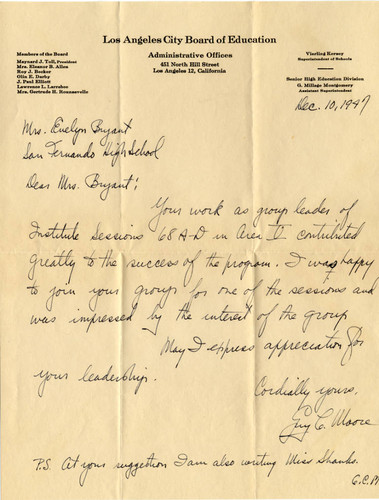 Los Angeles City Board of Education
Administrative Offices
451 North Hill Street
Los Angeles 12, California
Members of the Board
Maynard J. Toll, President
Mrs. Eleanor B. Allen
Roy J. Becker
Olin E. Darby
J. Paul Elliott
Lawrence L. Larrabee
Mrs. Gertrude H. Rounsavelle
Vierling Kersey
Superintendent of Schools
Senior High Education Division
G. Millage Montgomery
Assistant Superintendent
Dec. 10, 1947
Mrs. Evelyn Bryant
San Fernando High School
Dear Mrs. Bryant:
Your work as group leader of
Institute Sessions 68 A-D in Area V contributed
greatly to the success of the program. I was happy
to join your group for one of the sessions and
was impressed by the interest of the group
May I express appreciation for
your leadership.
Cordially yours,
Guy C. Moore
P.S. At your suggestion I am also writing Miss Shanks.
G.C.M